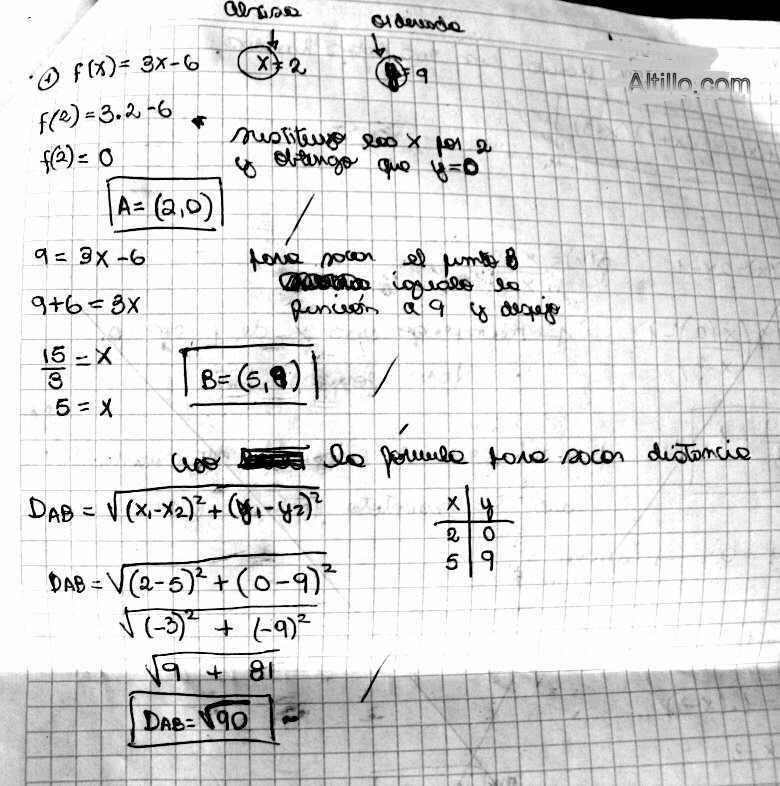 Abscisa ordenada
Altillo.com
① f(x) = 3x-6 x=2 y=9
f(2) = 3.2-6
sustituyo las x por 2
f(2) = 0
y obtengo que y=0
A = (2,0)
9 = 3x-6
para sacar el punto B
igualo la
9+6 = 3x
función a 9 y despejo
15/3 = x
B = (5,9)
5 = x
uso la fórmula para sacar distancia
DAB = √(x₁-x₂)² + (y₁-y₂)²
x y
2 0
5 9
DAB = √(2-5)² + (0-9)²
√(-3)² + (-9)²
√9 + 81
DAB = √90